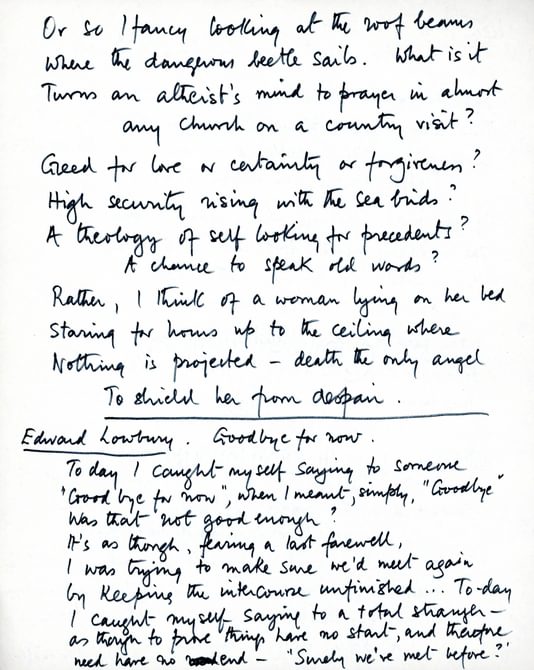 Or so I fancy looking at the roof beams
Where the dangerous beetle sails. What is it
Turns an altheist's mind to prayer in almost
any church on a country visit?
Greed for love or certainty or forgiveness?
High security rising with the sea birds?
A theology of self looking for precedents?
A chance to speak old words?
Rather, I think of a woman lying on her bed
Staring for hours up to the ceiling where
Nothing is projected – death the only angel
To shield her from despair.
Edward Lowbury. Goodbye for now.
To day I caught myself saying to someone
'Good bye for now", when I meant, simply, "Goodbye"
Was that not good enough?
It's as though, fearing a last farewell,
I was trying to make sure we'd meet again
by keeping the intercourse unfinished ... To-day
I caught myself saying to a total stranger –
as though to prove things have no start, and therefore
need have no end – "Surely we've met before?'